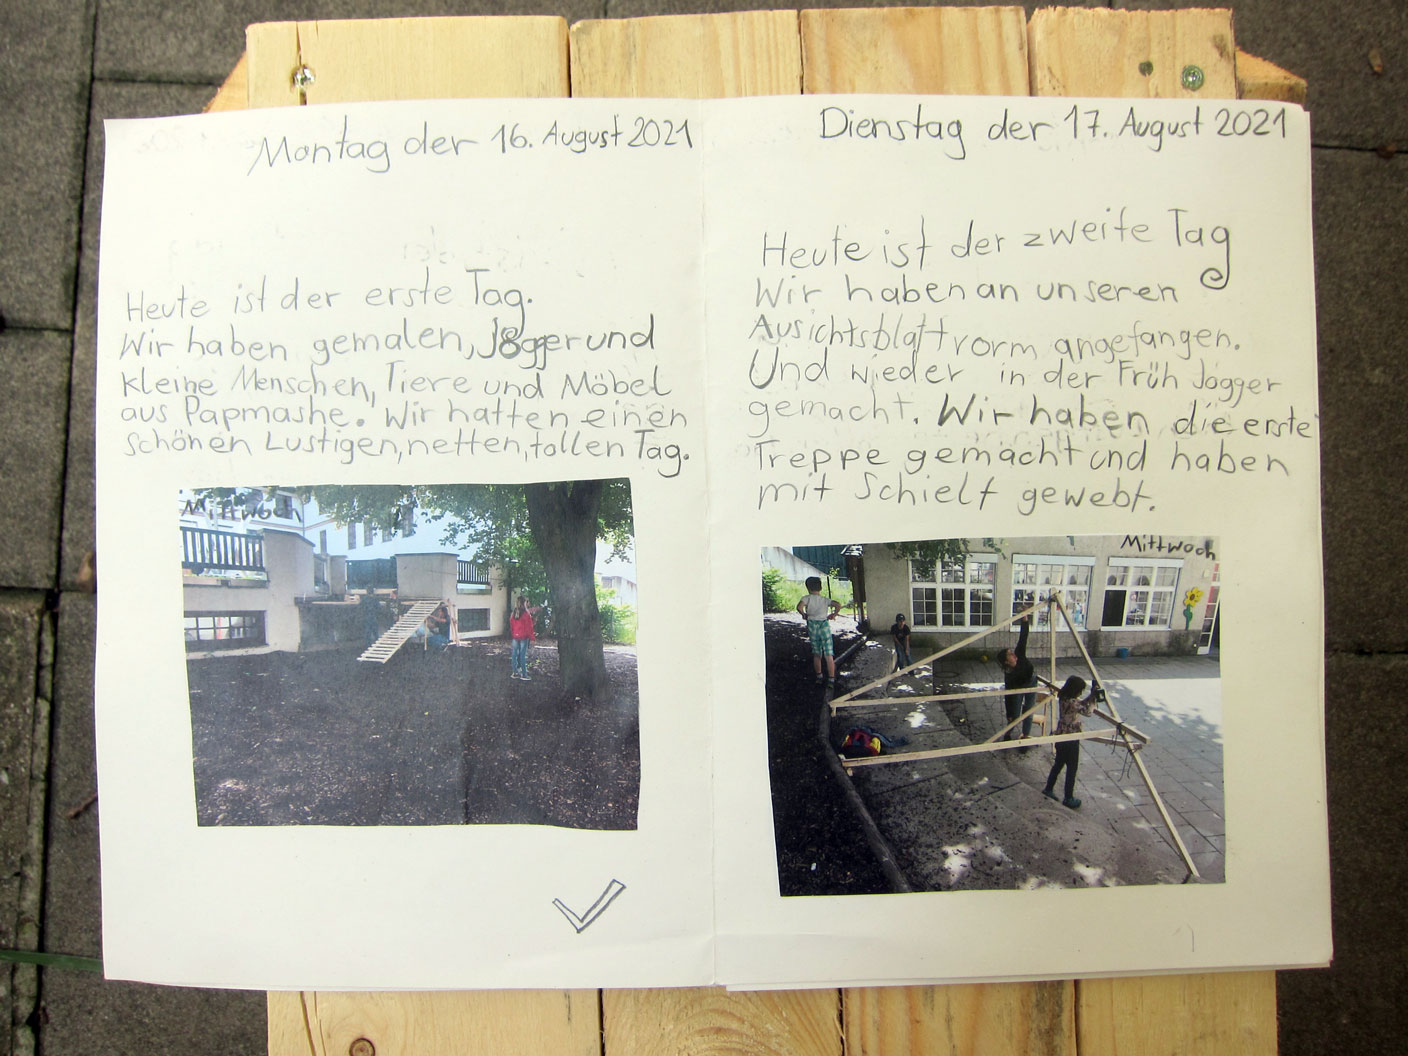 Montag der 16. August 2021
Heute ist der erste Tag.
Wir haben gemalen, Jögger und
kleine Menschen, Tiere und Möbel
aus Papmashe. Wir hatten einen
schönen Lustigen, netten, tollen Tag.
Mittwoch
Dienstag der 17. August 2021
Heute ist der zweite Tag
Wir haben an unseren
Ausichtsblattvorm angefangen.
Und wieder in der Früh Jogger
gemacht. Wir haben die erste
Treppe gemacht und haben
mit Schielf gewebt.
Mittwoch